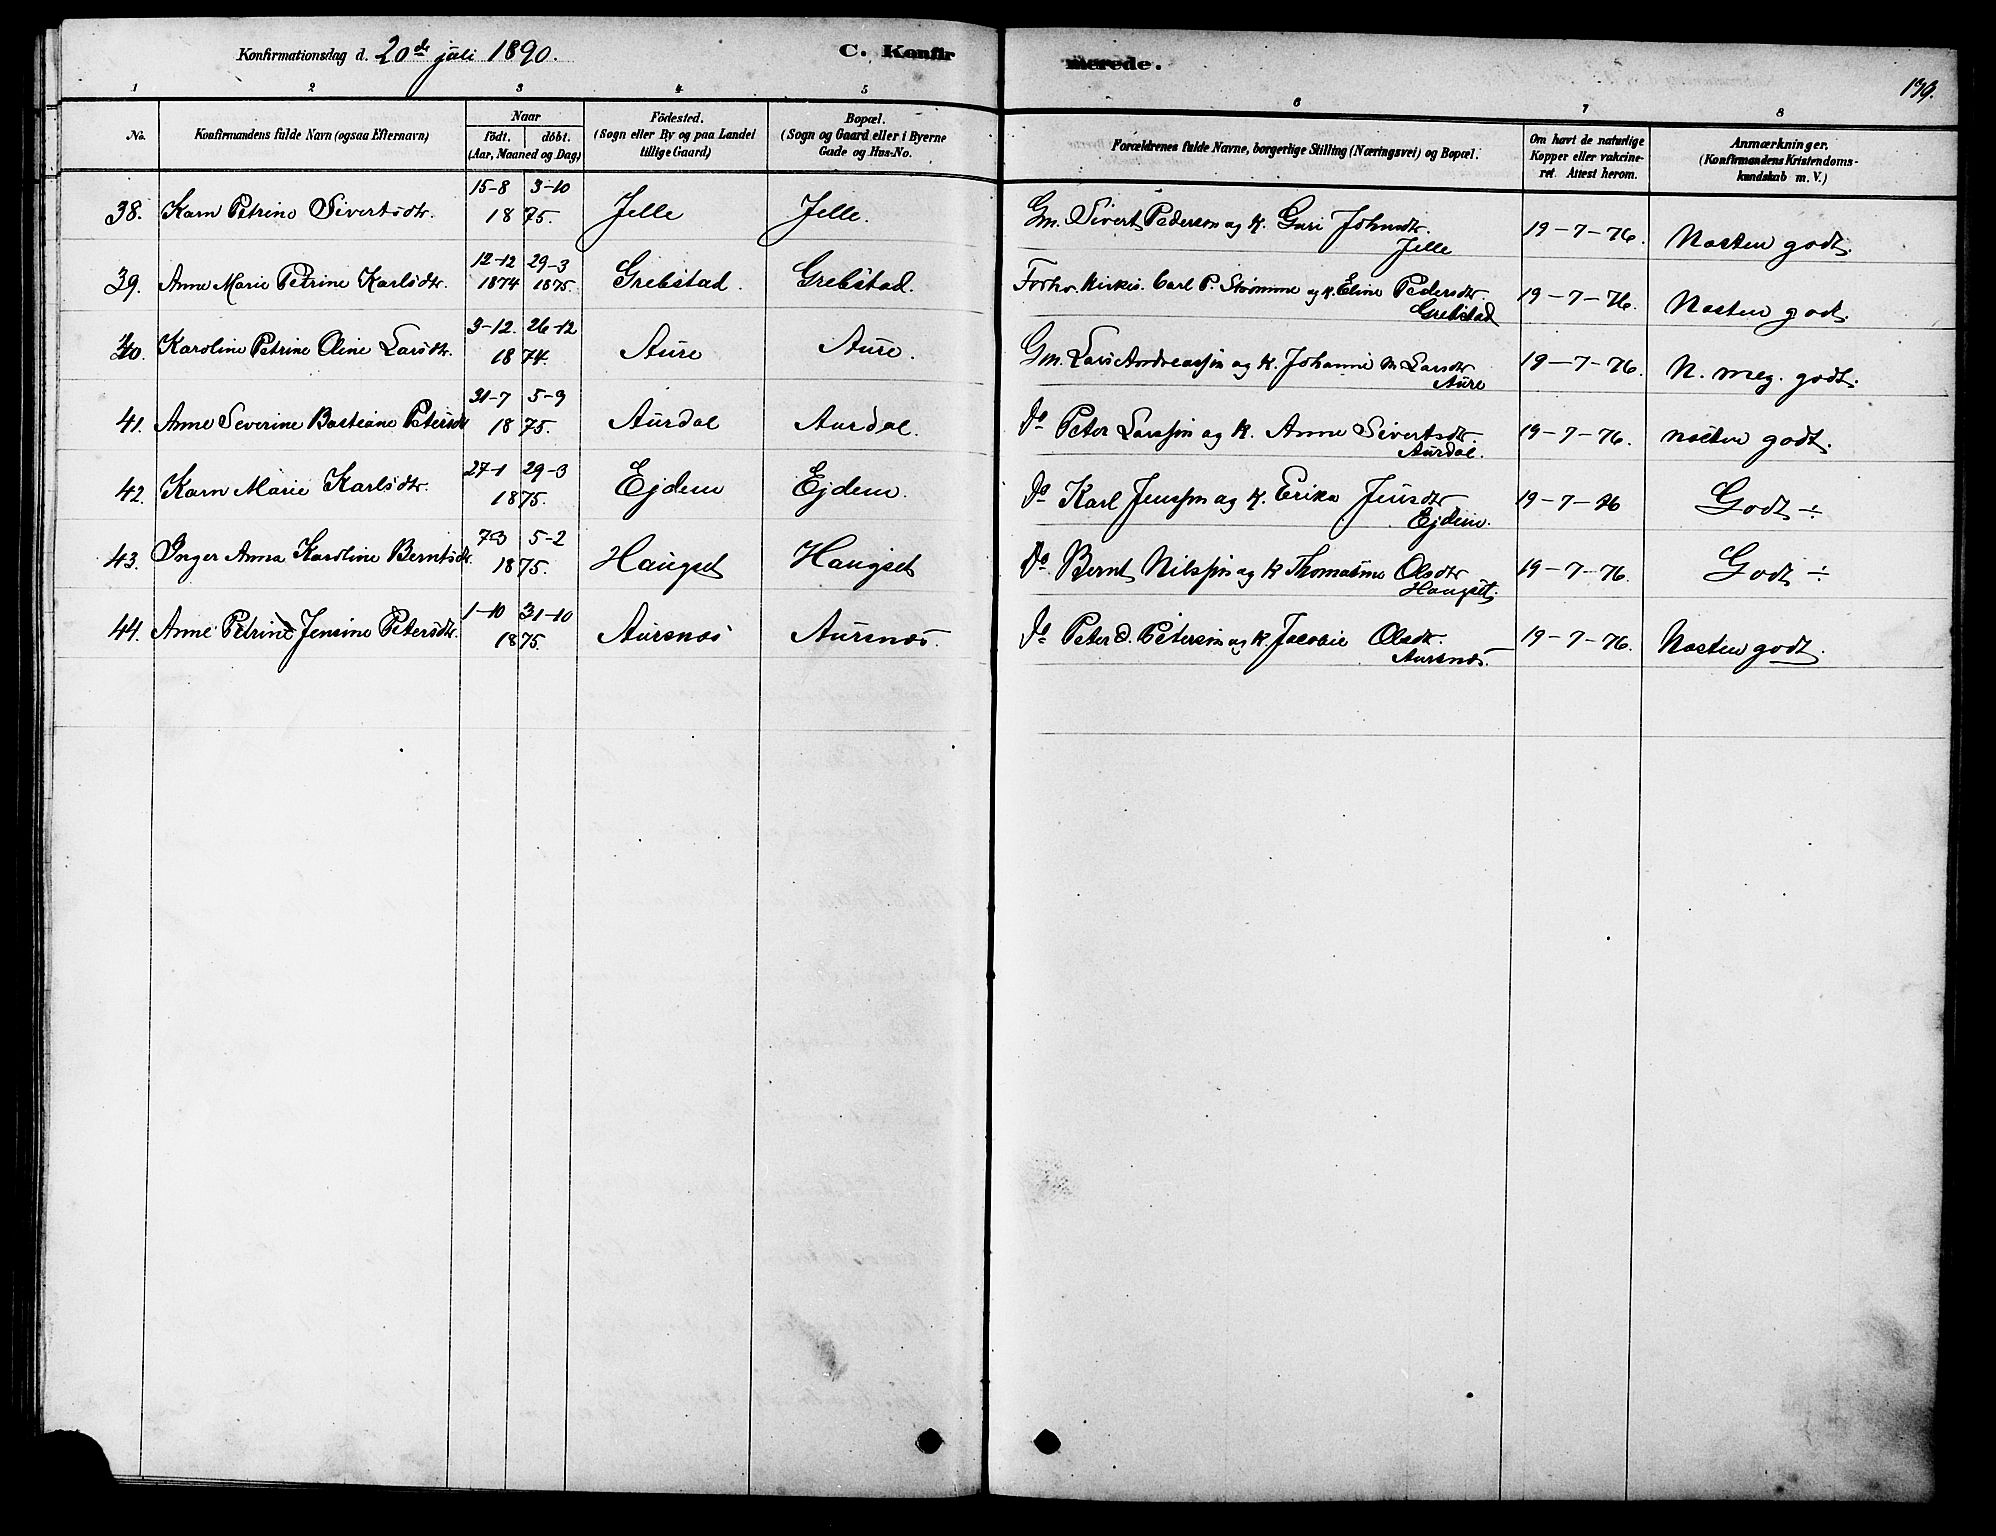 Konfirmationsdag d. 20de juli 1890. C. Konfir merede. 139.
1 2 3 4 5 6 7 8
No. Konfirmandens fulde Navn (ogsaa Efternavn) Naar født. døbt. (Aar, Maaned og Dag) Fødested. (Sogn eller By og paa Landet tillige Gaard) Bopæl. (Sogn og Gaard eller i Byerne Gade og Hus-No. Forældrenes fulde Navne, borgerlige Stilling (Næringsvei) og Bopæl. Om havt de naturlige Kopper eller vakcineret. Attest herom. Anmærkninger. (Konfirmandens Kristendomskundskab m. V.)
38. Karn Petrine Sivertsdtr. 15-8 3-10 1875. Jelle Jelle. Gm. Sivert Pederson og K. Guri Johnsdtr. Jelle 19-7-76. Næsten godt.
39. Anne Marie Petrine Karlsdtr. 12-12 1874 29-3 1875. Grebstad. Grebstad. Forhv. Kirkes. Carl P. Strømme og K. Eline Pedersdtr. Grebstad 19-7-76. Næsten godt.
40. Karoline Petrine Oline Larsdtr. 3-12. 26-12 1874. Aure Aure. Gm. Lars Andreassøn og K. Johanne M. Larsdtr Aure 19-7-76. N. meg. godt.
41. Anne Severine Bastiane Petersdtr 31-7 5-9 1875. Aurdal Aurdal. Do Peter Larssøn og K. Anne Sivertsdtr. Aurdal. 19-7-76. næsten godt.
42. Karn Marie Karlsdtr. 27-1 29-3 1875. Ejdem Ejdem. Do Karl Jenssøn og K. Erika Jensdtr Ejdem. 19-7-76 Godt ÷
43. Inger Anna Karoline Berntsdtr. 5-2 1875. Haugset Haugset Do. Bernt Nilssøn og K Thomasine Olsdtr Haugset. 19-7-76. Godt ÷
44. Anne Petrine Jensine Petersdtr. 1-10 31-10 1875. Aursnæs Aursnæs. Do Peter O. Petersøn og K. Jacobie Olsdtr. Aursnæs. 19-7-76. Næsten godt.